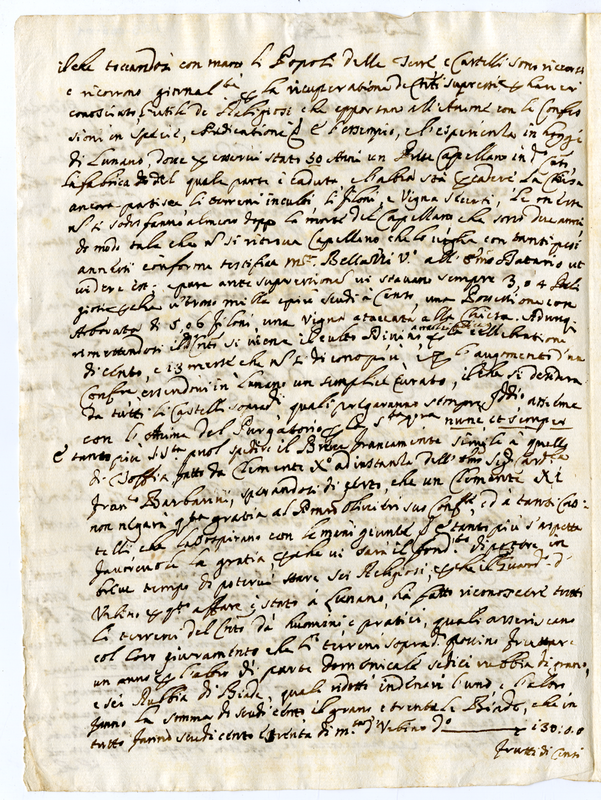 ilche toccandosi con mano li Popoli delle Terre e Castelli sono ricorsi
e ricorrono giornal.te per la ricuperatione de Con.ti supressi, per haver
conosciuto l'utile de Religiosi che apportano all'Anime con le Confes
sioni in specie, Predicatione e l'essempio, e l'esperienza in hoggi
di Lunano, dove per esservi stato 50 Anni un Prete Capellano in d.o
la fabrica del quale parte è caduta e l'altra stà per cadere la Chiesa
ancora patisce li terreni inculti li filoni, e Vigna
n. si sodisfanno almeno dopo la morte del Capellano che sono due anni
de modo tale che n. si ritrova Capellano che lo voglia con tanti pesi
annessi conforme testifica m.r Bellavi V.o all' Datario ut
videre est: e pure ante supressionem vi stavano sempre 3, o 4
che vi sono mille e più scudi di Censi, una Possessione con
di 5, o 6 filoni, una Vigna attaccata alla Chiesa. Adunq;
remettendosi il Con.to si viene il culto Divino la celebratione
di cento, e 13 messe che n. si dicono più, l'augumento d'una
Confes essendovi in Lunano un semplice Curato, ilche si desidera
da tutti li Castelli sopradi, quali pregaranno sempre Iddio assieme
con l'Anime del Purgatorio nunc et semper
E tanto più si puol spedire il Breve francamente simile a quello
di fatto da Clemente X.o ad instanza dell' Sig. Card.le
Fran.o Barbarini, sperandosi di certo, che un Clemente XI
non negarà q.sta gratia al suo Conf.e, ed à tanti Cas-
telli che la sospirano con le mani giunte, e tanto più s'aspetta
favorevole la gratia, perche vi sarà il fond.to di potere con
breve tempo di potervi stare sei Religiosi, perche il Guard.o d'
Urbino per q.to affare è stato à Lunano, hà fatto riconoscere tutti
li terreni del Con.to da huomini e pratici, quali asseriscano
col loro giuramento che li terreni soprad. possino fruttare
un anno per l'altro di parte Dominicale sedici rubbia di grano,
e sei Rubbia di Biade, quali ridotti in denari l'uno, e l'altro
fanno la somma di scudi cento il grano e trenta le Biade, che in
tutto fanno scudi cento e trenta di m.ta d'Urbino d.o ——— 130:0.0
frutti di Censi